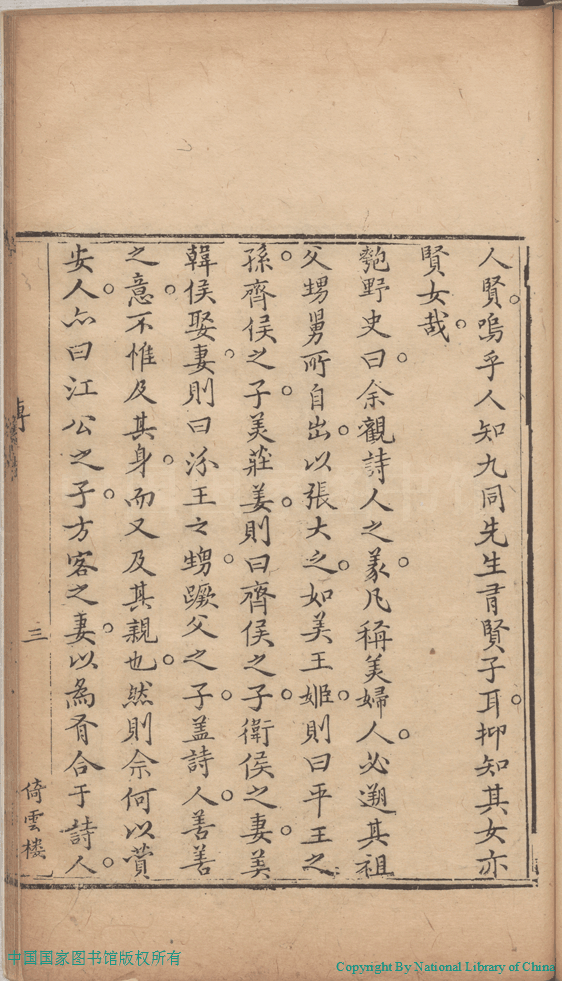 人賢嗚乎人知九同先生有賢子耳抑知其女亦
賢女哉
匏野史曰余觀詩人之義凡稱美婦人必遡其祖
父甥舅所自出以張大之如美王姬則曰平王之
孫齊侯之子美莊姜則曰齊侯之子衛侯之妻美
韓侯娶妻則曰汾王之甥蹶父之子盖詩人善善
之意不惟及其身而又及其親也然則余何以賞
安人亦曰江公之子方客之妻以為有合于詩人
三
倚雲楼
中国国家图书馆版权所有
Copyright By National Library of China